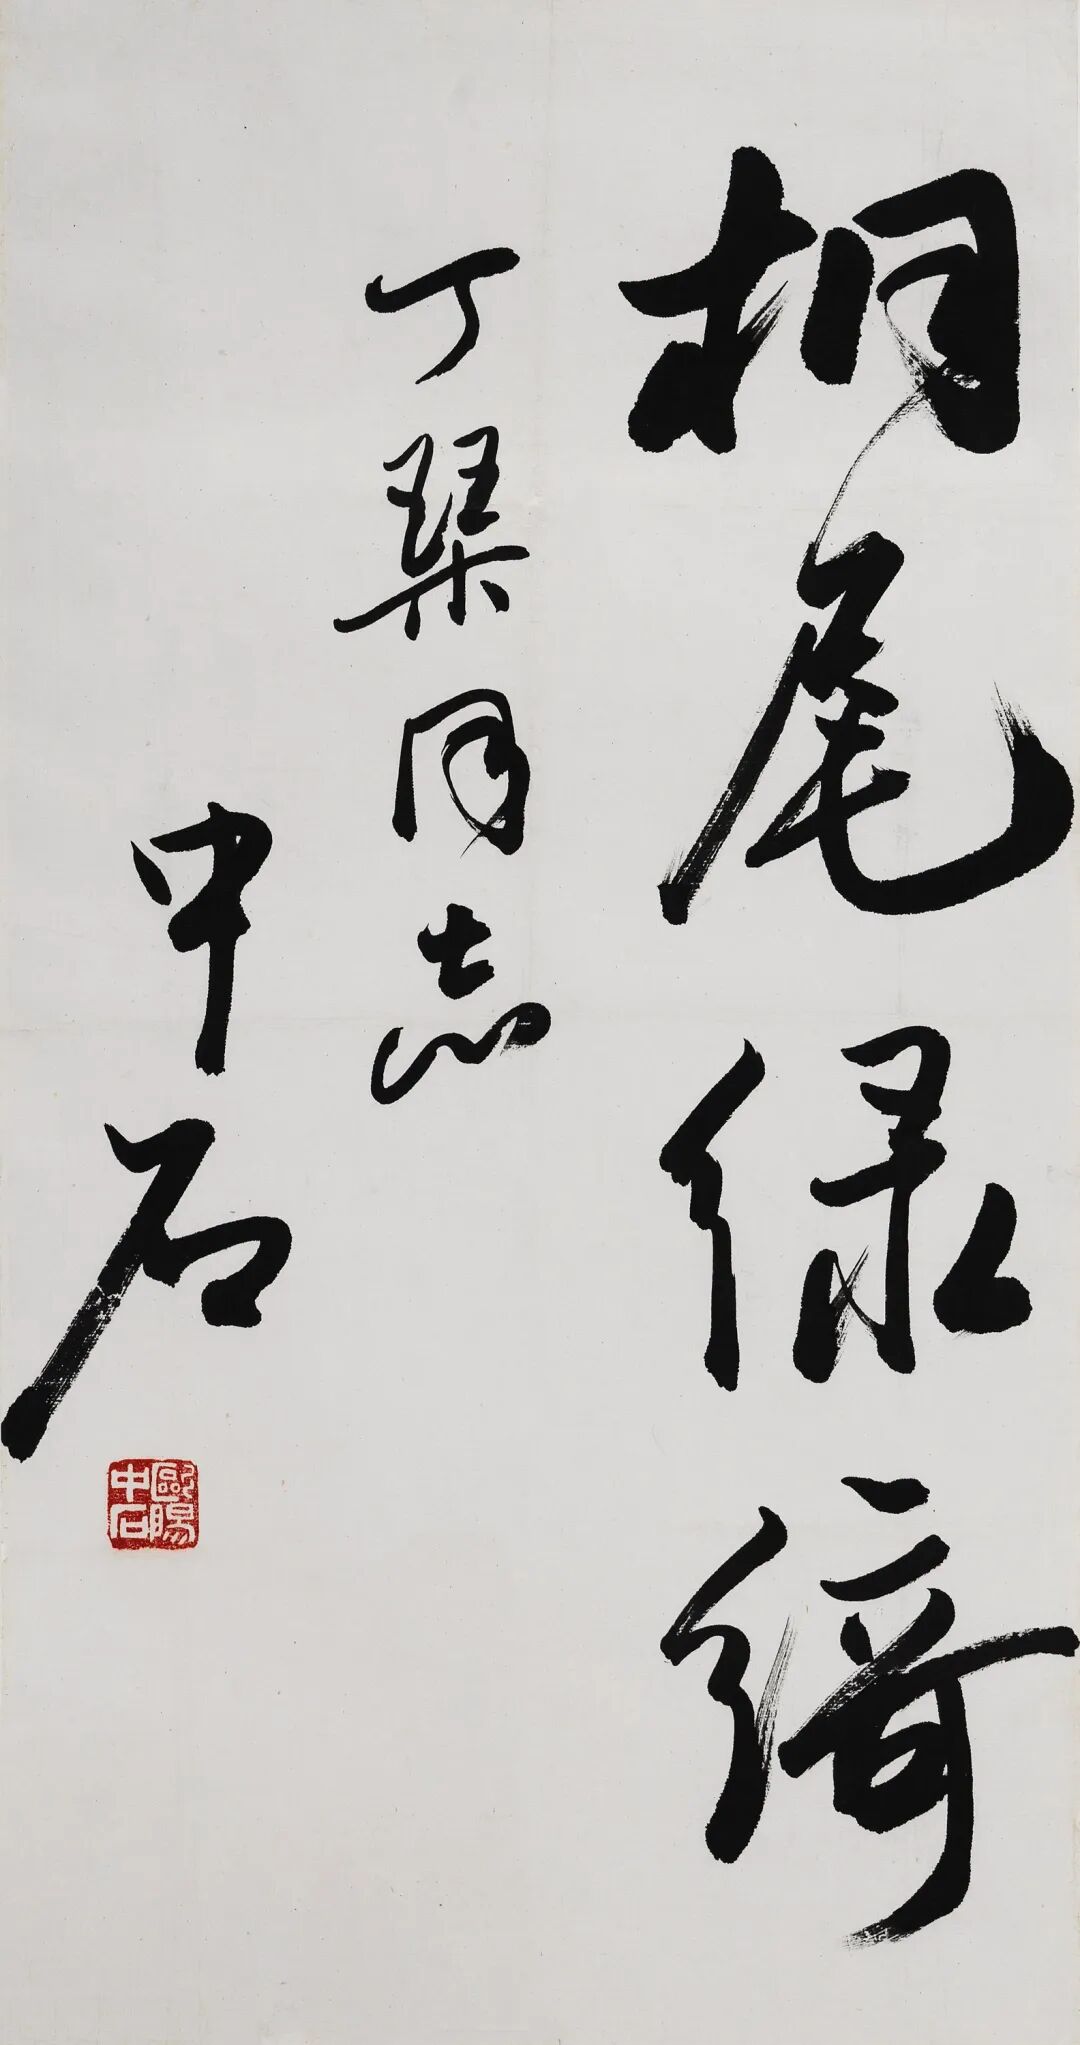 桐尾绿绮
丁琹同志
中石
歐陽
中石